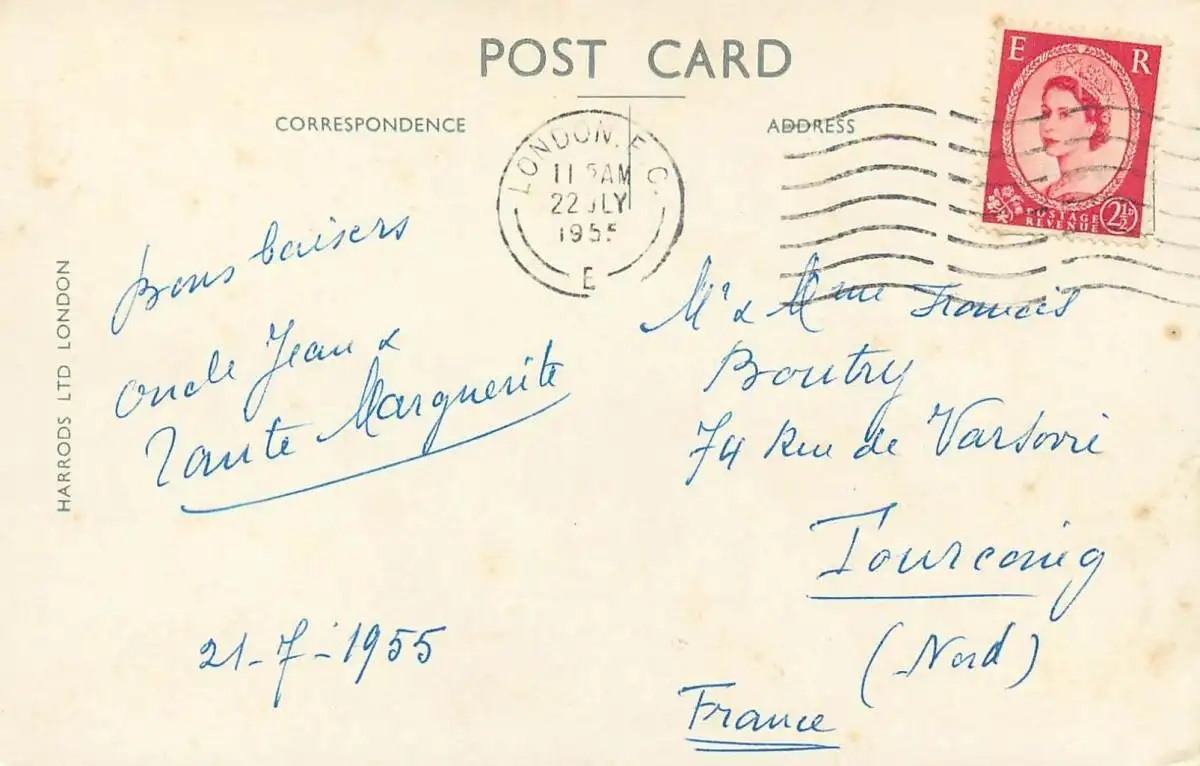 POST CARD
CORRESPONDENCE
ADDRESS
HARRODS LTD LONDON
LONDON. E.C.
AM
22 JLY
1955
E
E R
POSTAGE
REVENUE
2½D
Bons baisers
Oncle Jean &
Tante Marguerite
21-7-1955
Mr & Mme Francis
Boutry
74 Rue de Varsovie
Tourcoing
(Nord)
France